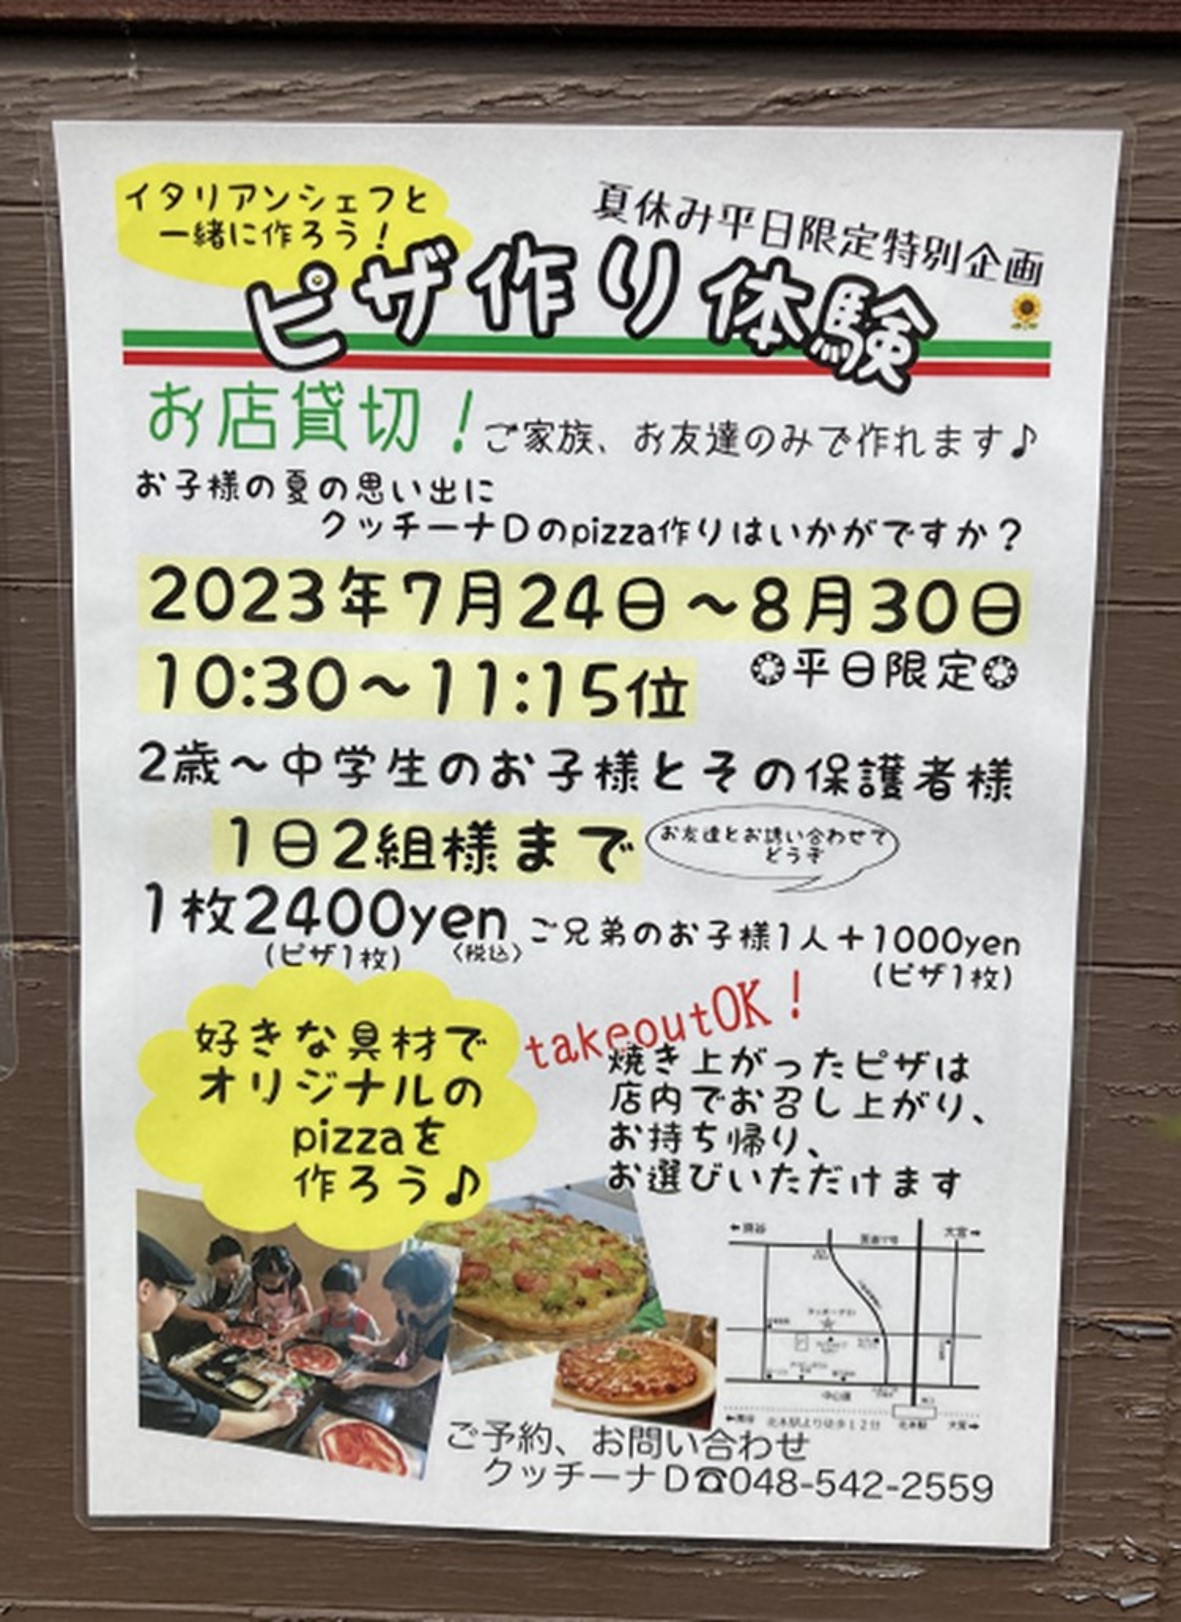 イタリアンシェフと
一緒に作ろう！
夏休み平日限定特別企画
ピザ作り体験
お店貸切！ご家族、お友達のみで作れます♪
お子様の夏の思い出に
クッチーナDのpizza作りはいかがですか？
2023年7月24日～8月30日
10:30～11:15位
❂平日限定❂
2歳～中学生のお子様とその保護者様
1日2組様まで
お友達とお誘い合わせて
どうぞ
1枚2400yen ご兄弟のお子様1人＋1000yen
(ピザ1枚) 〈税込〉
(ピザ1枚)
takeoutOK！
好きな具材で
オリジナルの
pizzaを
作ろう♪
焼き上がったピザは
店内でお召し上がり、
お持ち帰り、
お選びいただけます
←熊谷
大宮→
中山道
北本駅より徒歩12分
北本駅
大宮→
ご予約、お問い合わせ
クッチーナD☎048-542-2559